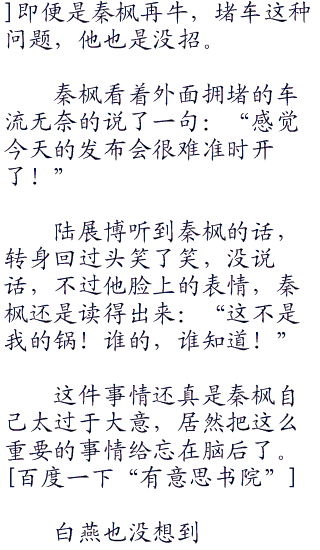 ]即便是秦枫再牛，堵车这种
问题，他也是没招。
秦枫看着外面拥堵的车
流无奈的说了一句：“感觉
今天的发布会很难准时开
了！”
陆展博听到秦枫的话，
转身回过头笑了笑，没说
话，不过他脸上的表情，秦
枫还是读得出来：“这不是
我的锅！谁的，谁知道！”
这件事情还真是秦枫自
己太过于大意，居然把这么
重要的事情给忘在脑后了。
[百度一下“有意思书院”]
白燕也没想到